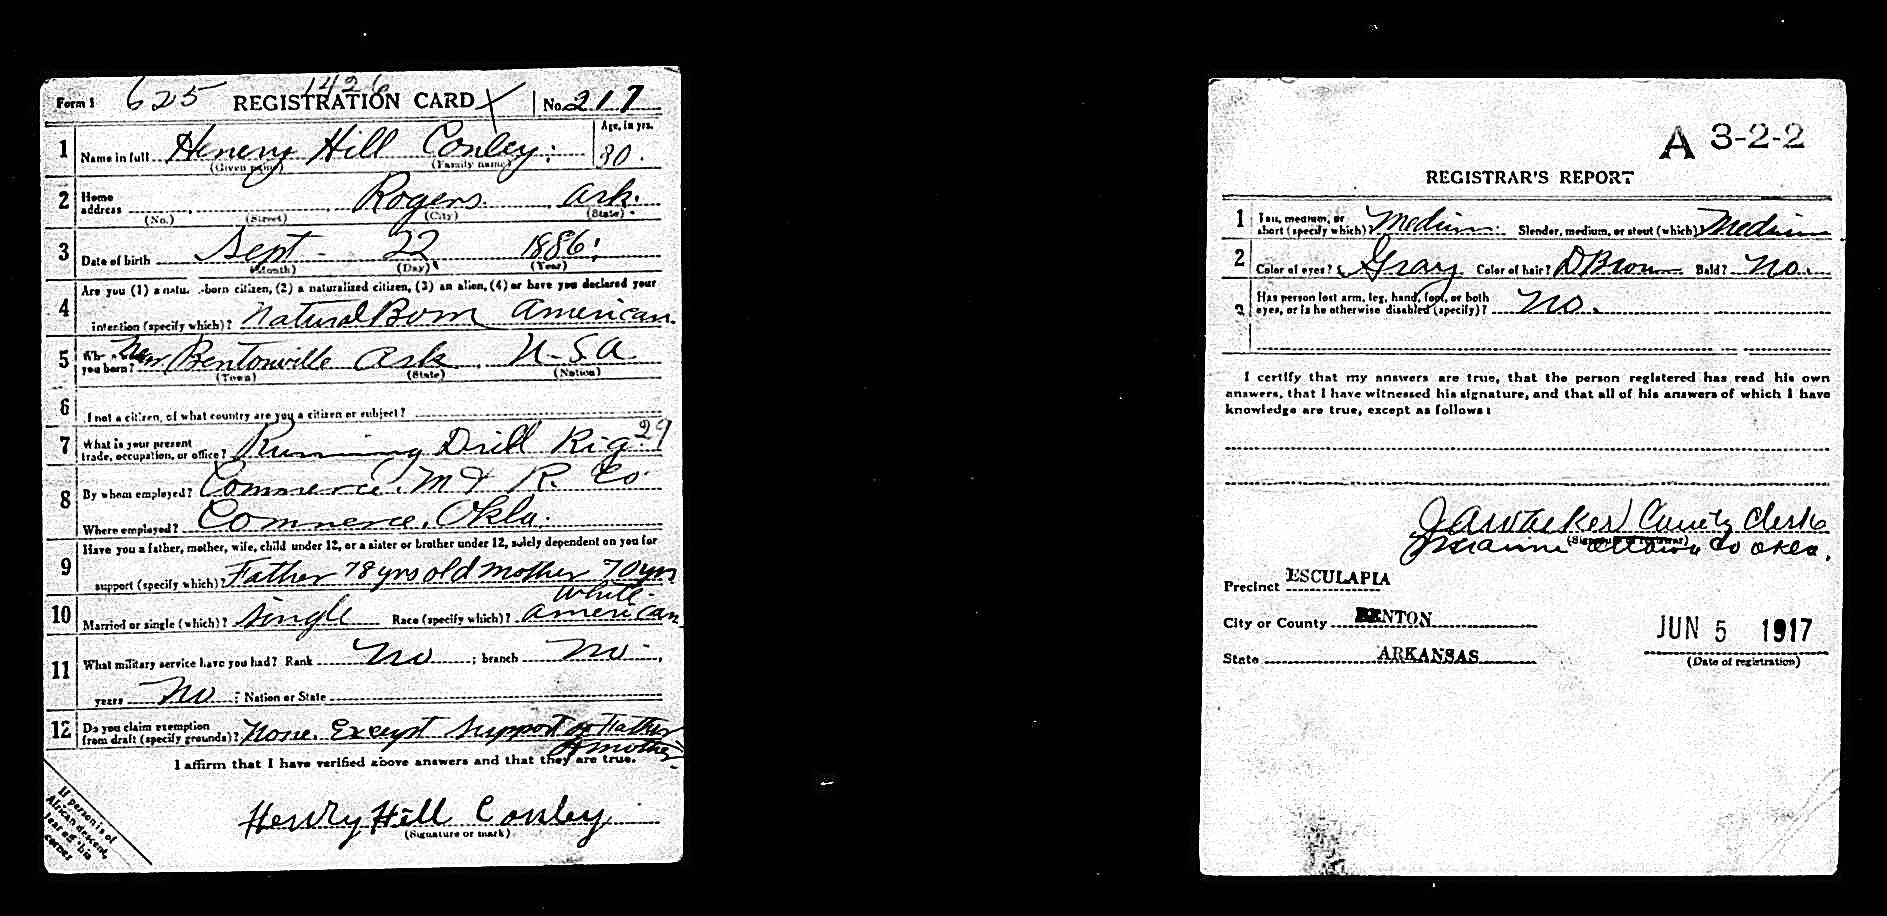 Form 1 625 REGISTRATION CARD X No. 217
1426
1 Name in full Heneny Hill Conley; Age, in yrs. 30.
(Given name) (Family name)
2 Home address Rogers. Ark.
(No.) (Street) (City) (State)
3 Date of birth Sept - 22 1886!
(Month) (Day) (Year)
4 Are you (1) a natu -born citizen, (2) a naturalized citizen, (3) an alien, (4) or have you declared your
intention (specify which)? Natural Born American.
5 Wh you born? Near Bentonville Ark. U-S.A.
(Town) (State) (Nation)
6 I not a citizen, of what country are you a citizen or subject?
7 What is your present trade, occupation, or office? Running Drill Rig 29
8 By whom employed? Commerce. M & R. Co.
Where employed? Commerce, Okla.
9 Have you a father, mother, wife, child under 12, or a sister or brother under 12, solely dependent on you for
support (specify which)? Father 78 yrs old mother 70 yrs
White.
10 Married or single (which)? Single Race (specify which)? American
11 What military service have you had? Rank No ; branch No - ,
years No ; Nation or State
12 Do you claim exemption from draft (specify grounds)? None. Except support of Father
& mother
I affirm that I have verified above answers and that they are true.
Henry Hill Conley
(Signature or mark)
If person is of African descent, tear off this corner
A 3-2-2
REGISTRAR'S REPORT
1 Tall, medium, or short (specify which)? Medium. Slender, medium, or stout (which)? Medium
2 Color of eyes? Gray Color of hair? D Brown Bald? No.
3 Has person lost arm, leg, hand, foot, or both
eyes, or is he otherwise disabled (specify)? No.
I certify that my answers are true, that the person registered has read his own
answers, that I have witnessed his signature, and that all of his answers of which I have
knowledge are true, except as follows:
J A Walker County Clerk
(Signature of registrar)
Co Okla.
Precinct ESCULAPIA
City or County BENTON
State ARKANSAS
JUN 5 1917
(Date of registration)